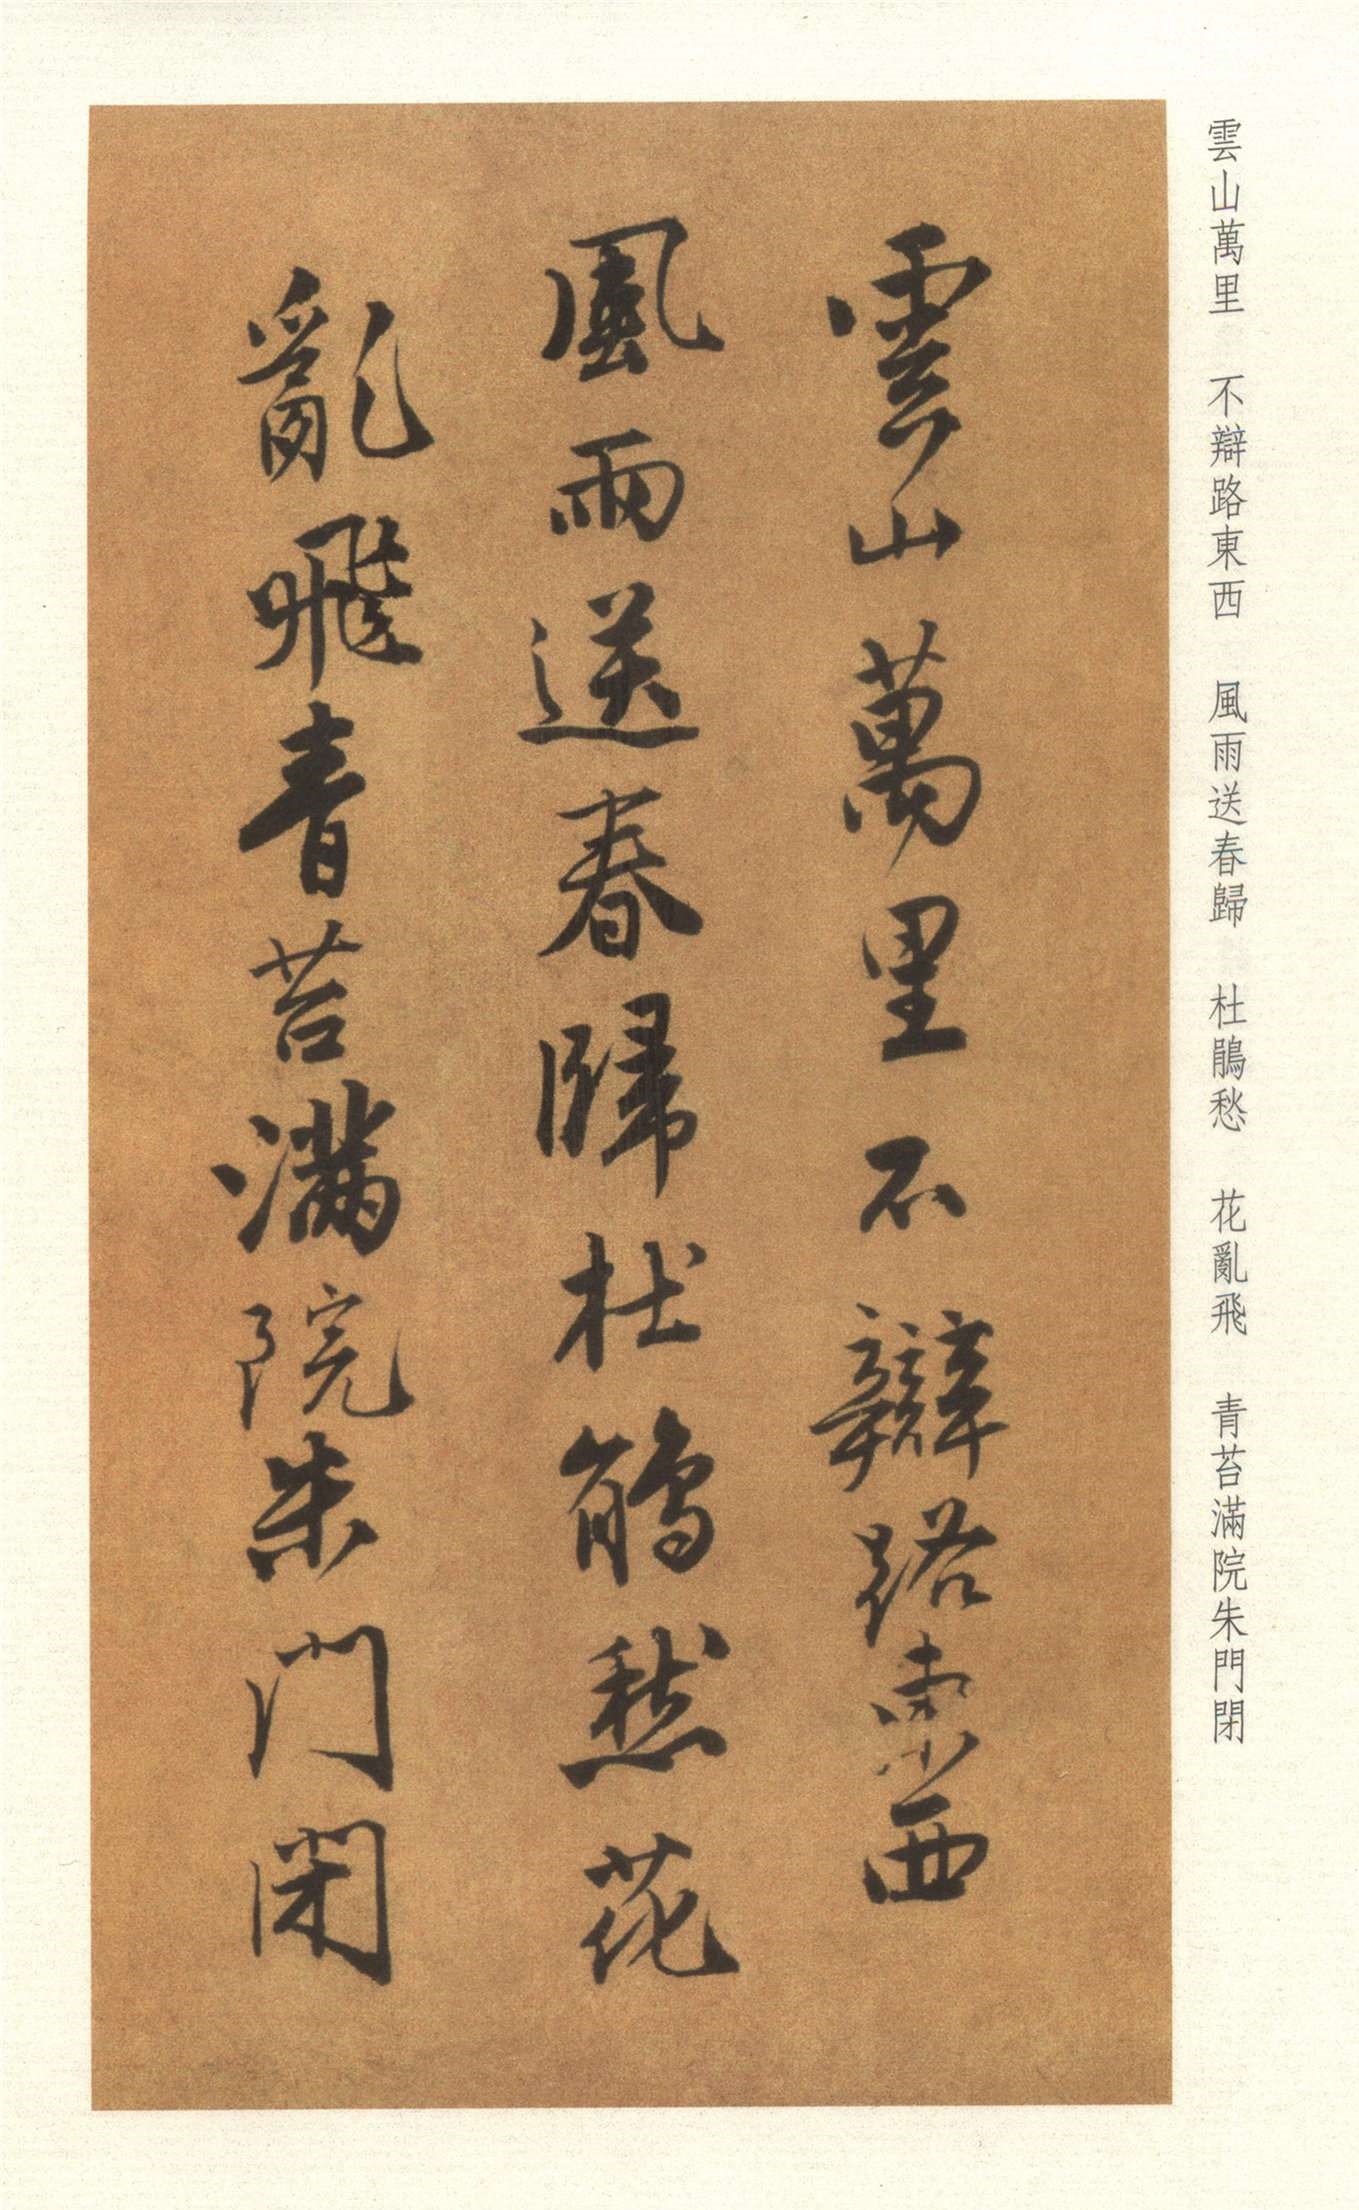 雲山萬里　不辯路東西　風雨送春歸　杜鵑愁　花亂飛　青苔滿院朱門閉
雲山萬里不辯路東西
風雨送春歸杜鵑愁花
亂飛青苔滿院朱門閉